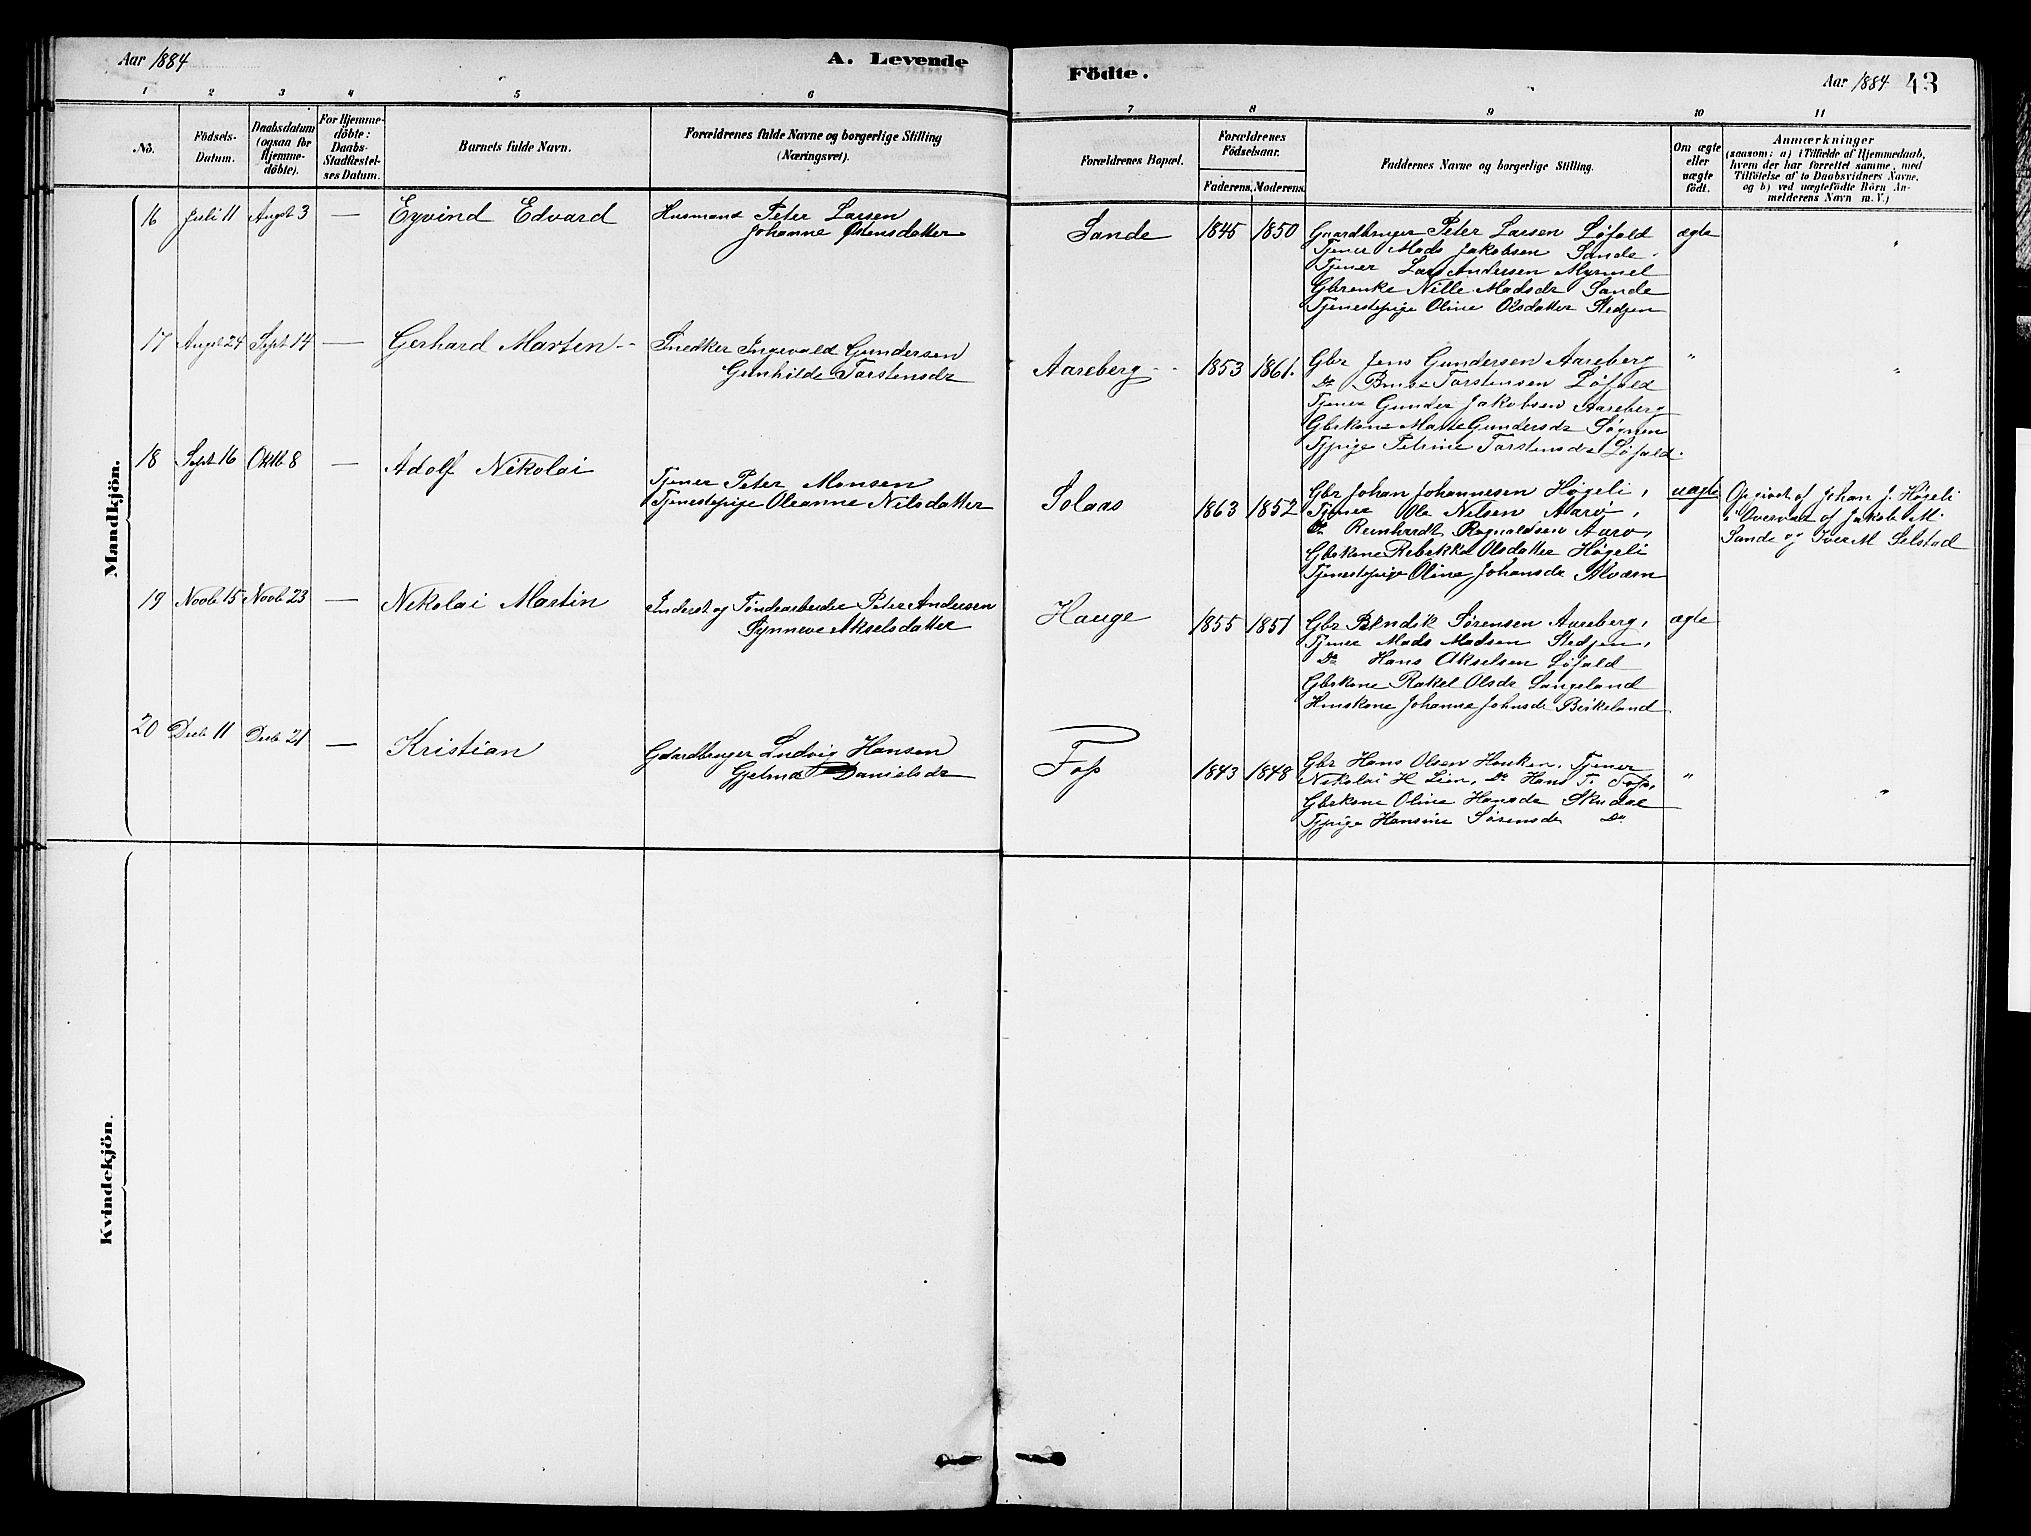 Aar 1884
A. Levende Födte.
Aar 1884
43
1 2 3 4 5 6 7 8 9 10 11
No.
Födsels-Datum.
Daabsdatum (ogsaa for Hjemme-döbte).
For Hjemme-döbte: Daabs-Stadfæstel-ses Datum.
Barnets fulde Navn.
Forældrenes fulde Navne og borgerlige Stilling
(Næringsvei).
Forældrenes Bopæl.
Forældrenes Födselsaar.
Faderens. Moderens.
Faddernes Navne og borgerlige Stilling.
Om ægte eller uægte födt.
Anmærkninger
(saasom: a) i Tilfælde af Hjemmedaab,
hvem der har forrettet samme, med
Tilföielse af to Daabsvidners Navne,
og b) ved uægtefödte Börn An-
melderens Navn m. V.)
Mandkjön.
16 Juli 11 Augst 3 — Eyvind Edvard
Husmand Peter Larsen
Johanne Østensdatter
Sande 1845 1850
Gaardbruger Peter Larsen Løfald
Tjener Mads Jakobsen Sande.
Tjener Lars Andersen Myrmel
Gbrenke Nille Madsdr Sande
Tjenestepige Oline Olsdatter Stedjen
ægte "
17 Augst 24 Sept 14 — Gerhard Marten
Snedker Ingevald Gundersen
Gunhilde Torstensdr
Aareberg 1853 1861.
Gbr Jens Gundersen Aareberg
Do Torstensen Løfald
Tjener Gunder Jakobsen Aareberg
Gbrkone Marte Gundersdr Søgnen
Tjpige Petrine Torstensdr Løfald.
" "
18 Sept 16 Oktb 8 — Adolf Nikolai
Tjener Peter Monsen
Tjenestepige Oleanne Nilsdatter
Solaas 1863 1852
Gbr Johan Johannesen Høgeli,
Tjener Ole Nilsen Aarø,
Do Reinhardt Rognaldsen Aarø,
Gbrkone Rebekka Olsdatter Høgeli
Tjenestepige Oline Johansdr Alværn
uægte
Opgivet af Johan J. Høgeli
i Overvær af Jakob M.
Sande og Iver M Selstad
19 Novb 15 Novb 23 — Nikolai Martin
Inderst og Tøndearbeider Peter Andersen
Synneve Akselsdatter
Hauge 1855 1851
Gbr Bendik Sørensen Aareberg,
Tjener Mads Madsen Stedjen,
Do Hans Akselsen Løfald
Gbrkone Rakel Olsdr Langeland
Huuskone Johanne Johnsdr Birkeland
ægte
20 Decb 11 Decb 21 — Kristian
Gaardbruger Ludvig Hansen
Danielsdr
Foss 1843 1848
Gbr Hans Olsen Houken, Tjener
Nikolai H Lien, Do Hans T. Foss,
Gbrkone Oline Hansdr Skudal
Tjpige Hansine Sørensdr Do
" "
Kvindekjön.